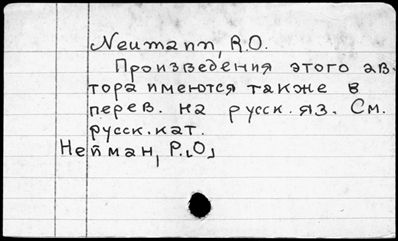 Neumann, R.O.
Произведения этого ав-
тора имеются также в
перев. на русск. яз. См.
русск. кат.
Нейман, Р.[О]